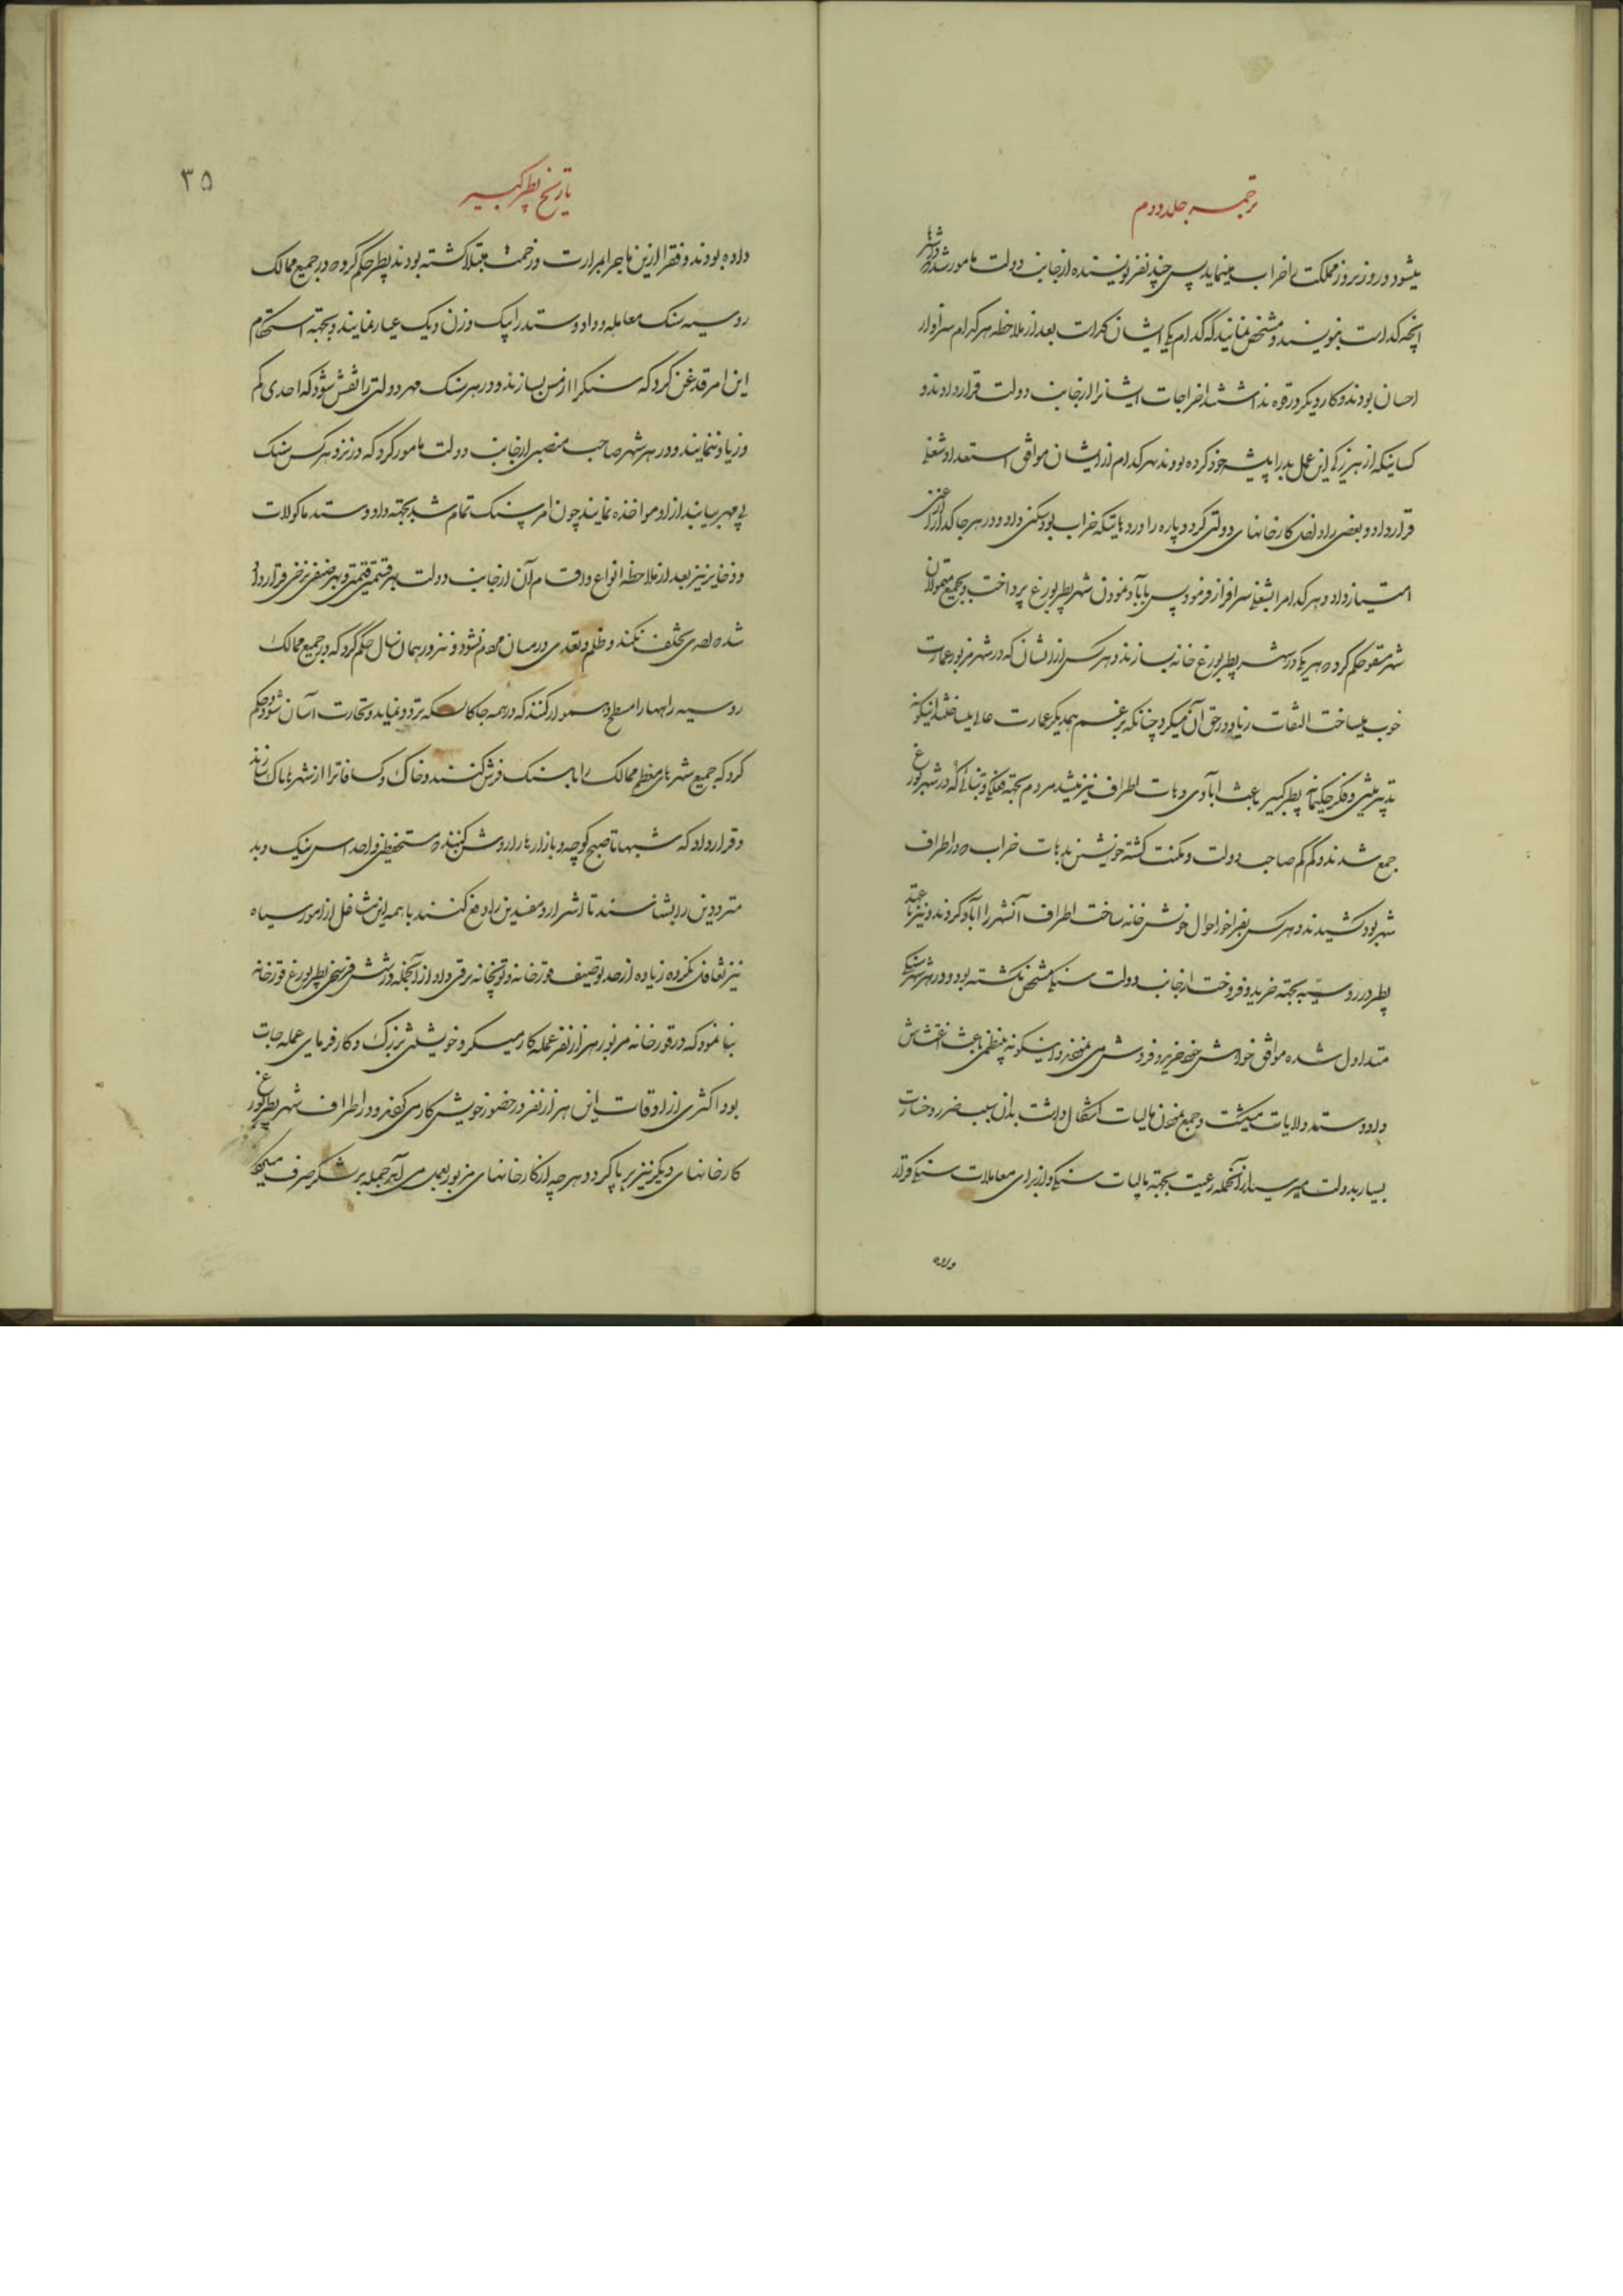 ترجمه جلد دوم
میشود و روز بروز مملکت را خراب مینماید پس چند نفر نویسنده از جانب دولت مامور شده در شهرها
آنچه کداست بنویسند و مشخص نمایند که کدام یک ایشان کدا است بعد از ملاحظه هر کدام سزاوار
احسان بودند و کار دیگر در قوه نداشتند اخراجات ایشانرا از جانب دولت قرار دادند و
کسانیکه از هرزگی این عمل بد را پیشه خود کرده بودند هر کدام از ایشان موافق استعداد شغلی
قرار داد و بعضی را داخل کارخانهای دولتی کرد و پاره را در دهاتیکه خراب بود سکنی داد و در هر جا کدا از
امتیاز داد و هر کدام را بشغلی سرافراز فرمود پس بآباد نمودن شهر پطربورغ پرداخت و بجمیع متمولان
شهر مسقو حکم کرد هر یک در شهر پطربورغ خانه بسازند و هر کس از ایشان که در شهر مزبور عمارت
خوب میساخت التفات زیاد در حق آن میکرد چنانکه برغم همدیگر عمارت عالی میساختند از اینگونه
تدبیر متین و فکر حکیمانه پطر کبیر باعث آبادی دهات اطراف نیز میشد مردم بجهته فعلگی و بنائی که در شهر پطربورغ
جمع شدند و کم کم صاحب دولت و مکنت گشته خویشتن بدهات خراب که در اطراف
شهر بود کشیدند و هر کس بفراخور احوال خوش خانه ساخت اطراف آنشهر را آباد کردند و نیز تا عهد
پطر در روسیه بجهته خرید و فروخت از جانب دولت سنگ مشخص نگشته بود و در هر شهر سنگی
متداول شده موافق خواهش خود خرید و فروش می نمودند و اینگونه بی نظمی باعث اغتشاش
داد و ستد ولایات میگشت و جمع نمودن مالیات اشکال داشت بدان سبب ضرر و خسارت
بسیار بدولت میرسید از آنجمله رعیت بجهته مالیات سنگی و از برای معاملات سنگی قرار
داده
تاریخ پطر کبیر
۳۵
داده بودند و فقرا ازین ماجرا بمرارت و زحمت مبتلا گشته بودند پطر حکم کرد که در جمیع ممالک
روسیه سنگ معامله و داد و ستد را بیک وزن و یک عیار نمایند و بجهته استحکام
این امر قدغن کرد که سنگ را از مس بسازند و در هر سنگ مهر دولتی را نقش شود که احدی کم
و زیاد ننمایند و در هر شهر صاحب منصبی از جانب دولت مامور کرد که در نزد هر کس سنگ
بی مهر بیابند از او مواخذه نمایند چون امر سنگ تمام شد بجهته داد و ستد ماکولات
و ذخایر نیز بعد از ملاحظه انواع و اقسام آن از جانب دولت بهر قسمتی قیمتی و بهر صنفی نرخی قرار داد
شده احدی تخلف نکند و ظلم و تعدی در میان مردم نشود و نیز در همان سال حکم کرد که در جمیع ممالک
روسیه راهها را مسطح و هموار کنند که در همه جا کالسکه تردد نماید و تجارت آسان شود و حکم
کرد که جمیع شهرهای معظم ممالک را با سنگ فرش کنند و خاک و کسافات را از شهرها پاک سازند
و قرار داد که شبها تا صبح کوچه و بازارها را روشن کنند مستحفظین و احداس نیک و بد
مترددین را بشناسند تا اشرار و مفسدین را دفع کنند با همه این مشاغل از امور سپاه
نیز تغافل نکرده زیاده از حد توصیف قورخانه و توپخانه ترقی داد از آنجمله در شش فرسخی پطربورغ قورخانه
بنا نمود که در قورخانه مزبور هزار نفر عمله کار میکرد و خویشتن بزرگ و کارفرمای عمله جات
بود اکثری از اوقات این هزار نفر در حضور خویش کار می کردند و در اطراف شهر پطربورغ
کارخانهای دیگر نیز برپا کرد و هر چه از کارخانهای مزبور بعمل می آمد جمله بر لشگر صرف میگشت